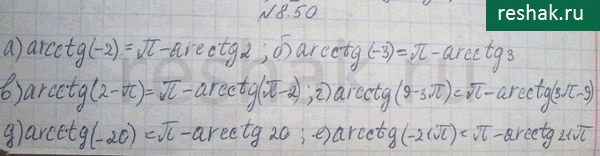 reshak.ru
№8.50
а) arcctg(-2) = π - arcctg 2 ; б) arcctg(-3) = π - arcctg 3
в) arcctg(2-π) = π - arcctg(π-2) ; г) arcctg(9-3π) = π - arcctg(3π-9)
д) arcctg(-20) = π - arcctg 20 ; е) arcctg(-21π) = π - arcctg 21π